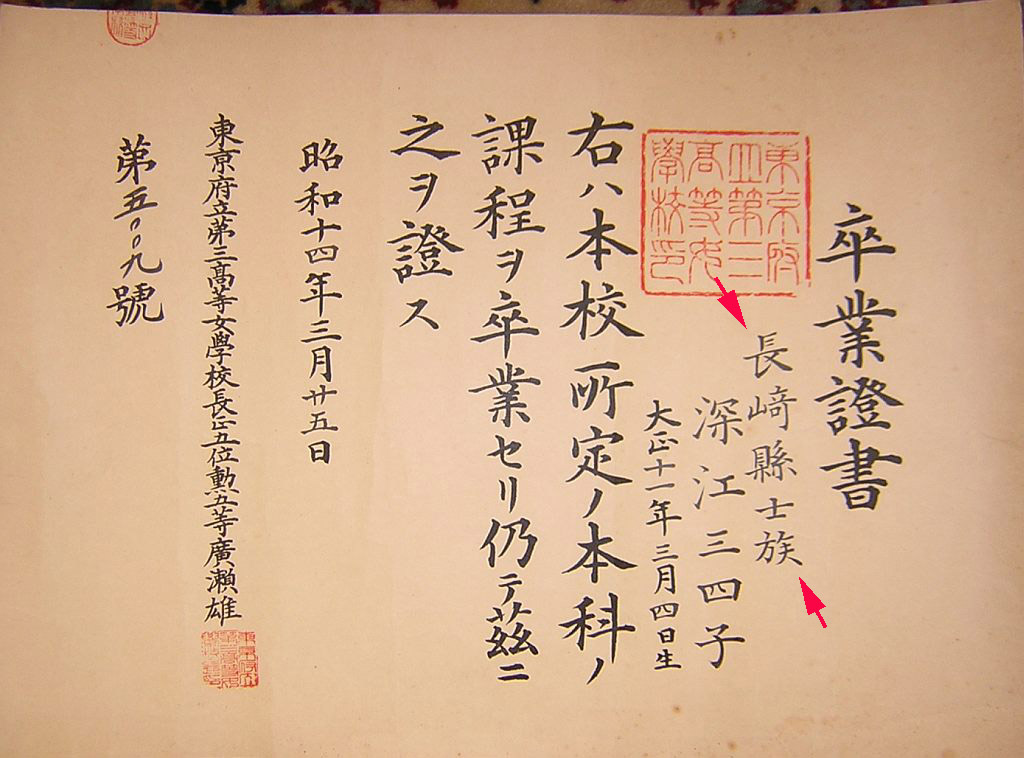 卒業證書
長﨑縣士族
深江三四子
大正十一年三月四日生
東京府
立第三
高等女
學校印
右ハ本校所定ノ本科ノ
課程ヲ卒業セリ仍テ茲ニ
之ヲ證ス
昭和十四年三月廿五日
東京府立第三高等女學校長正五位勲五等廣瀬雄
第五〇〇九號